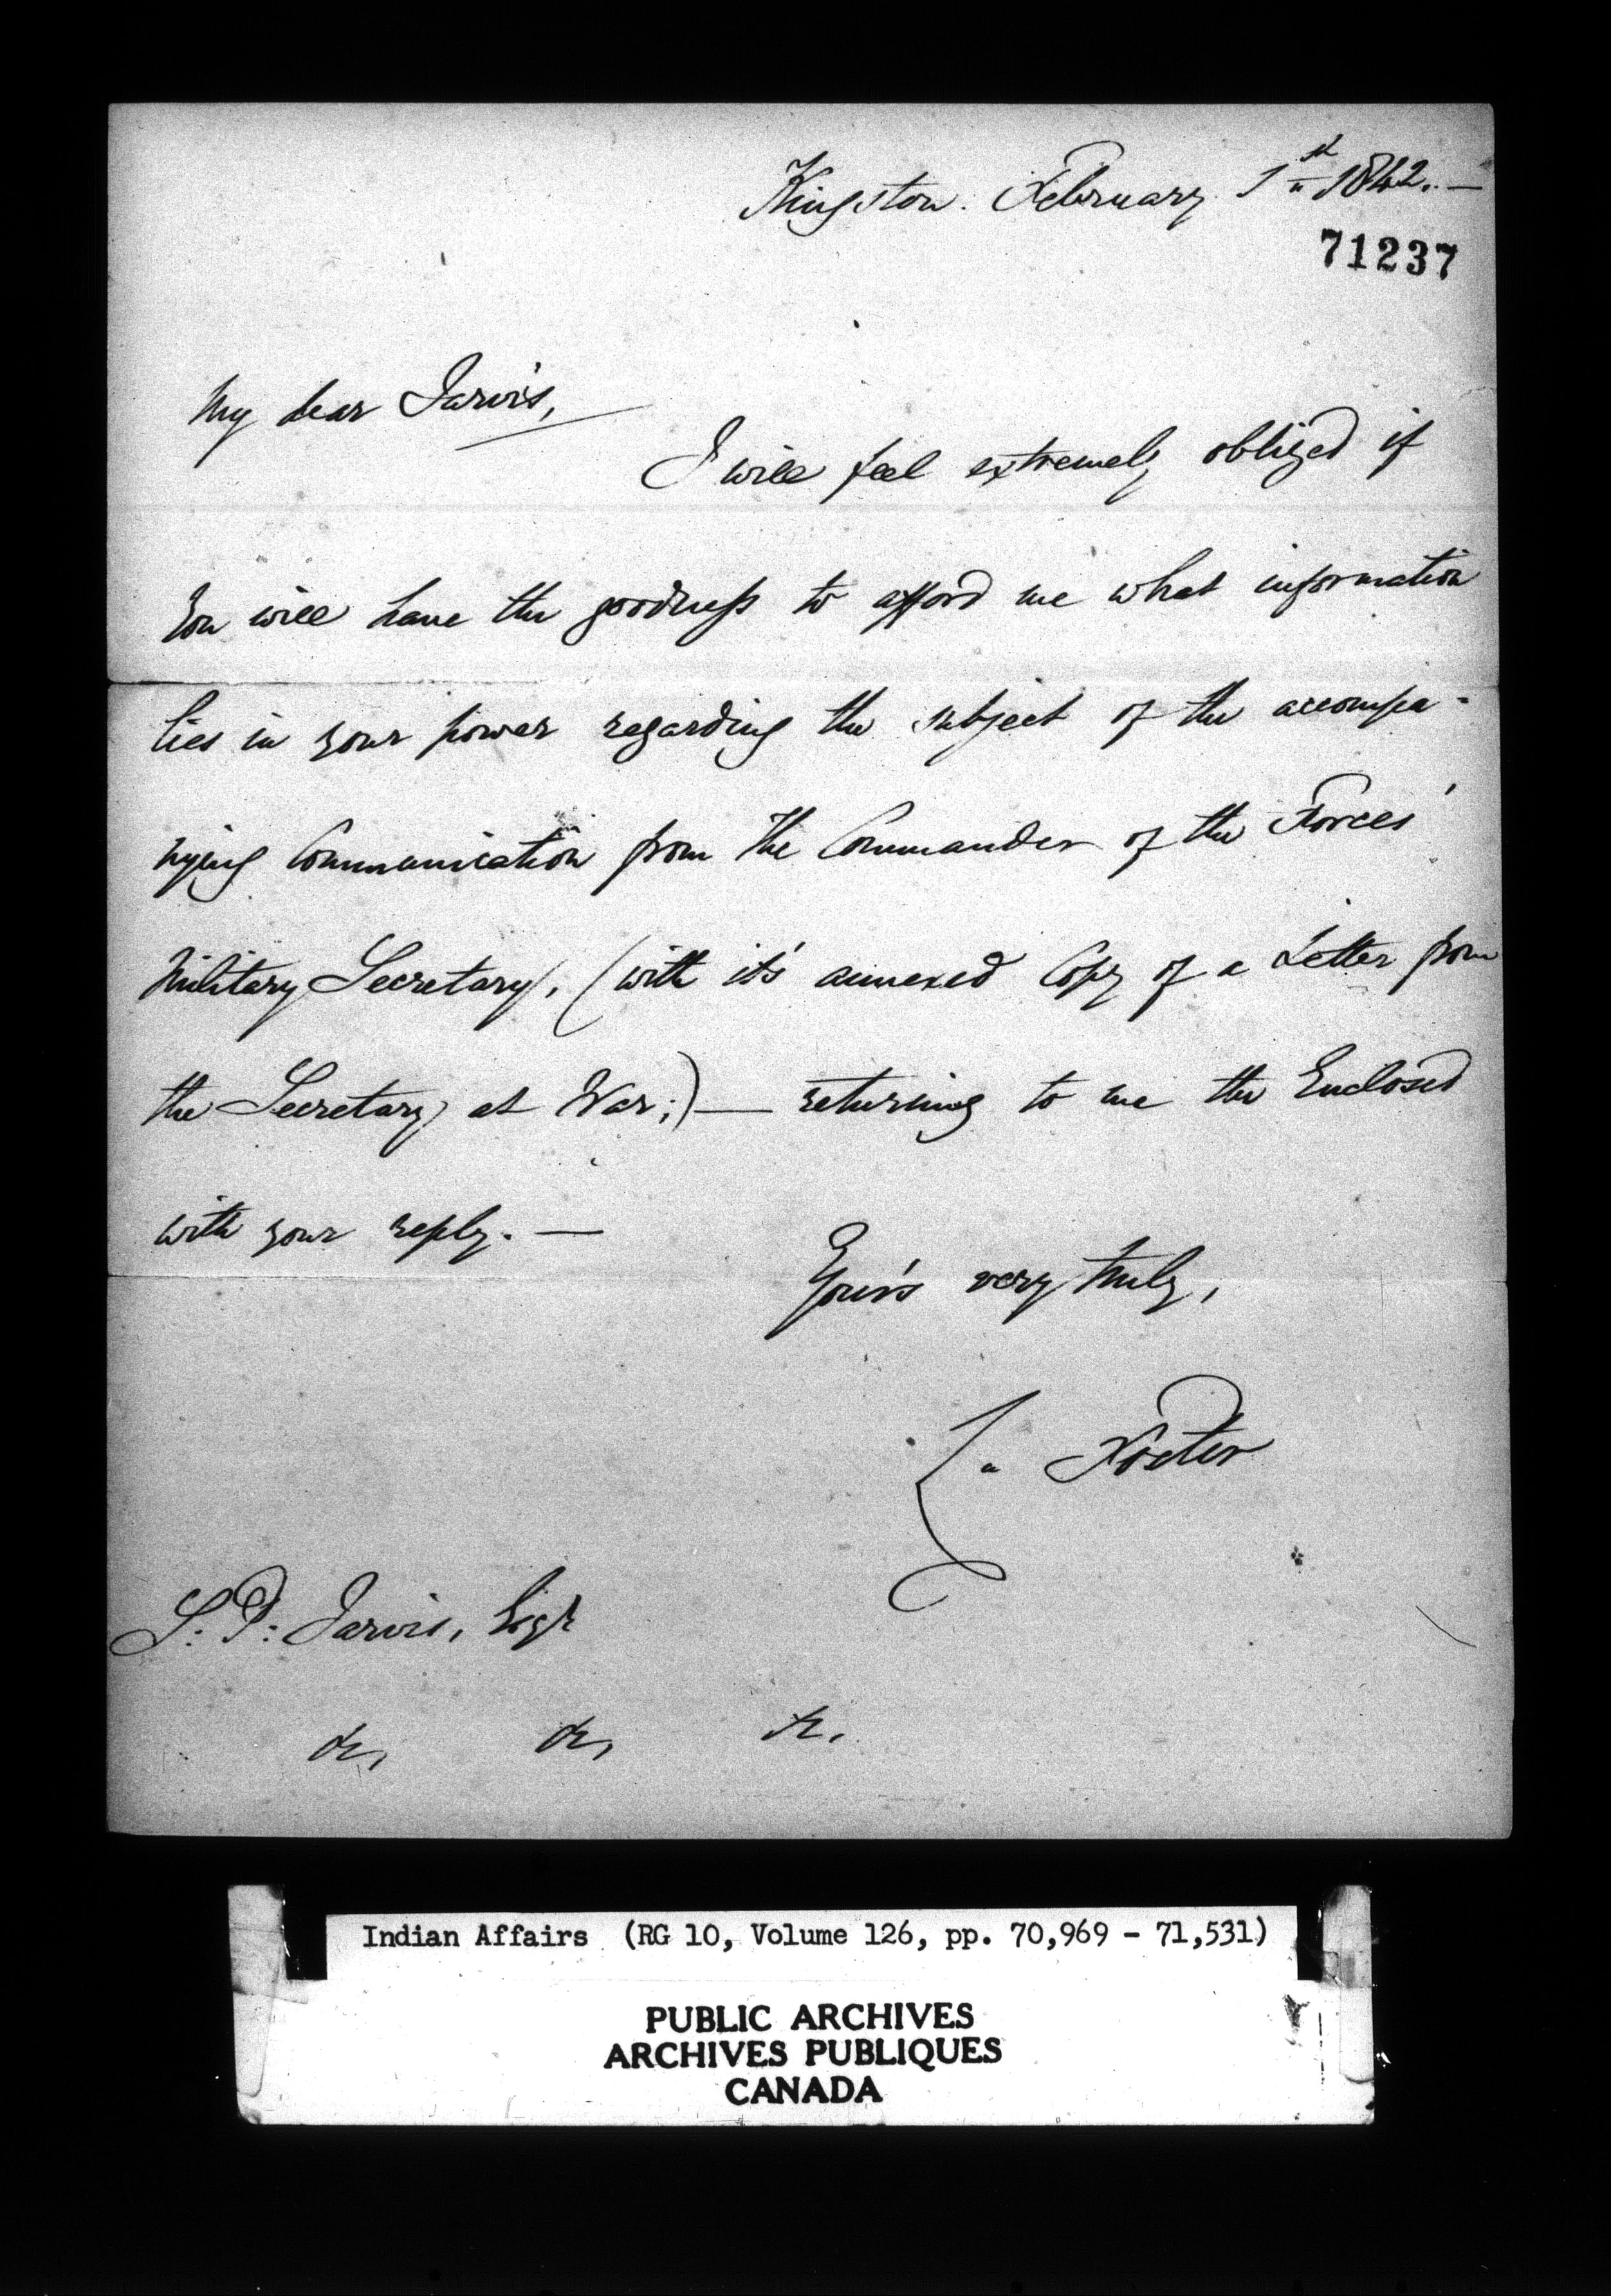 Kingston. February 1st 1842.—
71237
My dear Jarvis,
I will feel extremely obliged if
You will have the goodness to afford me what information
lies in your power regarding the subject of the accompa-
nying Communication from the Commander of the Forces'
Military Secretary, (with it's annexed Copy of a Letter from
the Secretary at War;) — returning to me the Enclosed
with your reply. —
Your's very truly,
Foster
S: P: Jarvis, Esqr
&c, &c, &c.
Indian Affairs (RG 10, Volume 126, pp. 70,969 - 71,531)
PUBLIC ARCHIVES
ARCHIVES PUBLIQUES
CANADA